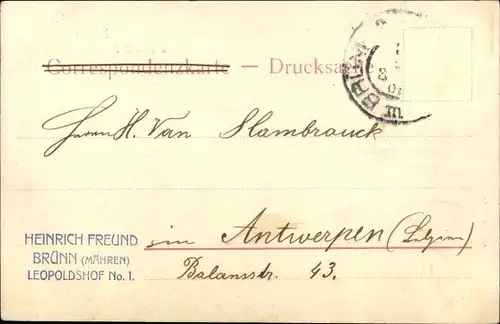 Correspondenzkarte — Drucksache
BRÜNN
III
Herrn H. Van Slambrouck
HEINRICH FREUND
BRÜNN (MÄHREN)
LEOPOLDSHOF No. 1.
in Antwerpen (Belgien)
Balansstr. 43.